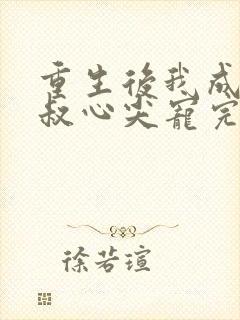 重生後我成
叔心尖寵完
徐若瑄